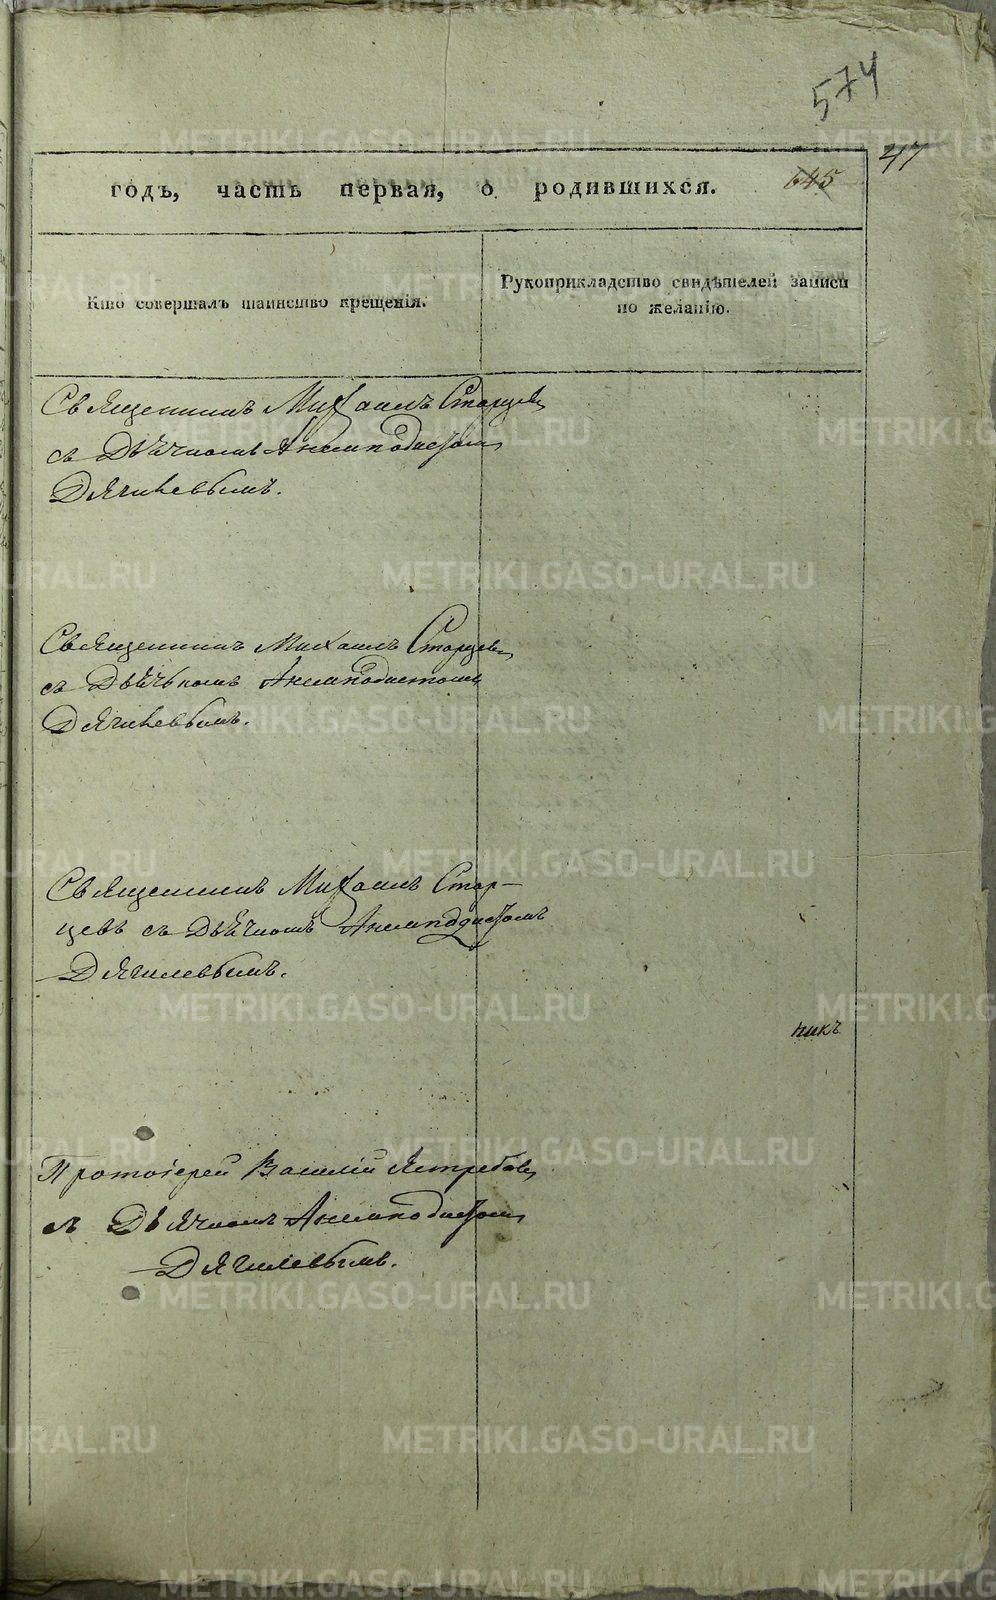 574
47
годъ, часть первая, о родившихся. 545
Кто совершалъ таинство крещенія.
Рукоприкладство свидѣтелей записи
по желанію.
Священникъ Михаилъ Старцев
съ Дьячкомъ Анемподистом
Дягилевымъ.
Священникъ Михаилъ Старцев
съ Дьячькомъ Анемподистомъ
Дягилевымъ.
Священникъ Михаилъ Стар-
цевъ съ Дьячкомъ Анемподистомъ
Дягилевымъ.
никъ
Протоіерей Василій Ястребов
съ Дьячкомъ Анемподистом
Дягилевымъ.
METRIKI.GASO-URAL.RU